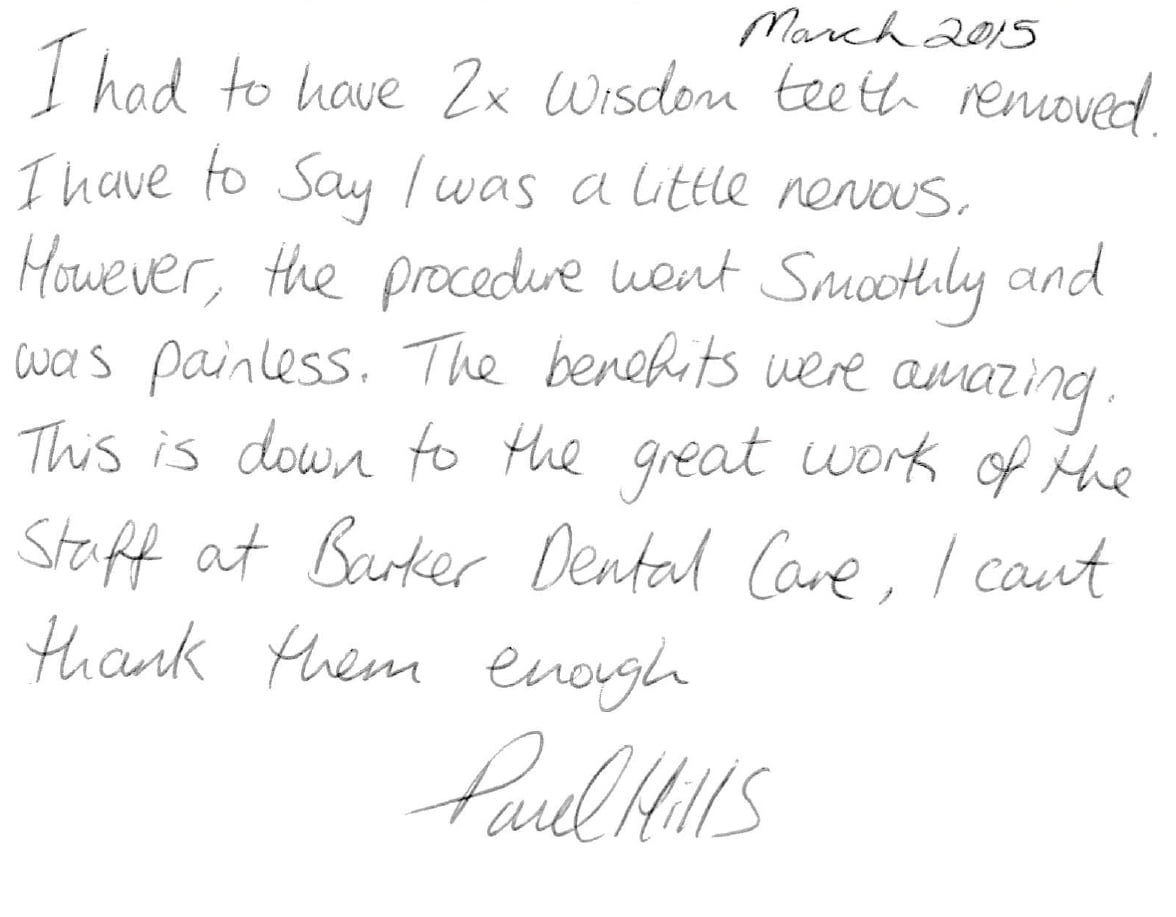 March 2015
I had to have 2x Wisdom teeth removed.
I have to Say I was a little nervous.
However, the procedure went Smoothly and
was painless. The benefits were amazing.
This is down to the great work of the
Staff at Barker Dental Care, I cant
thank them enough
Paul Mills